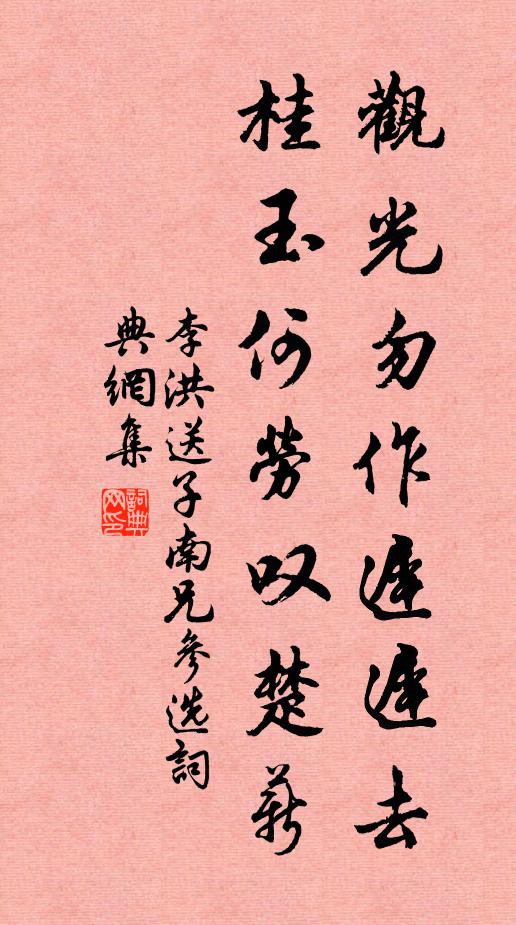 觀光勿作遲遲去
桂玉何勞叹楚薪
李洪送子南兄參选詞
典網集
詞典網印